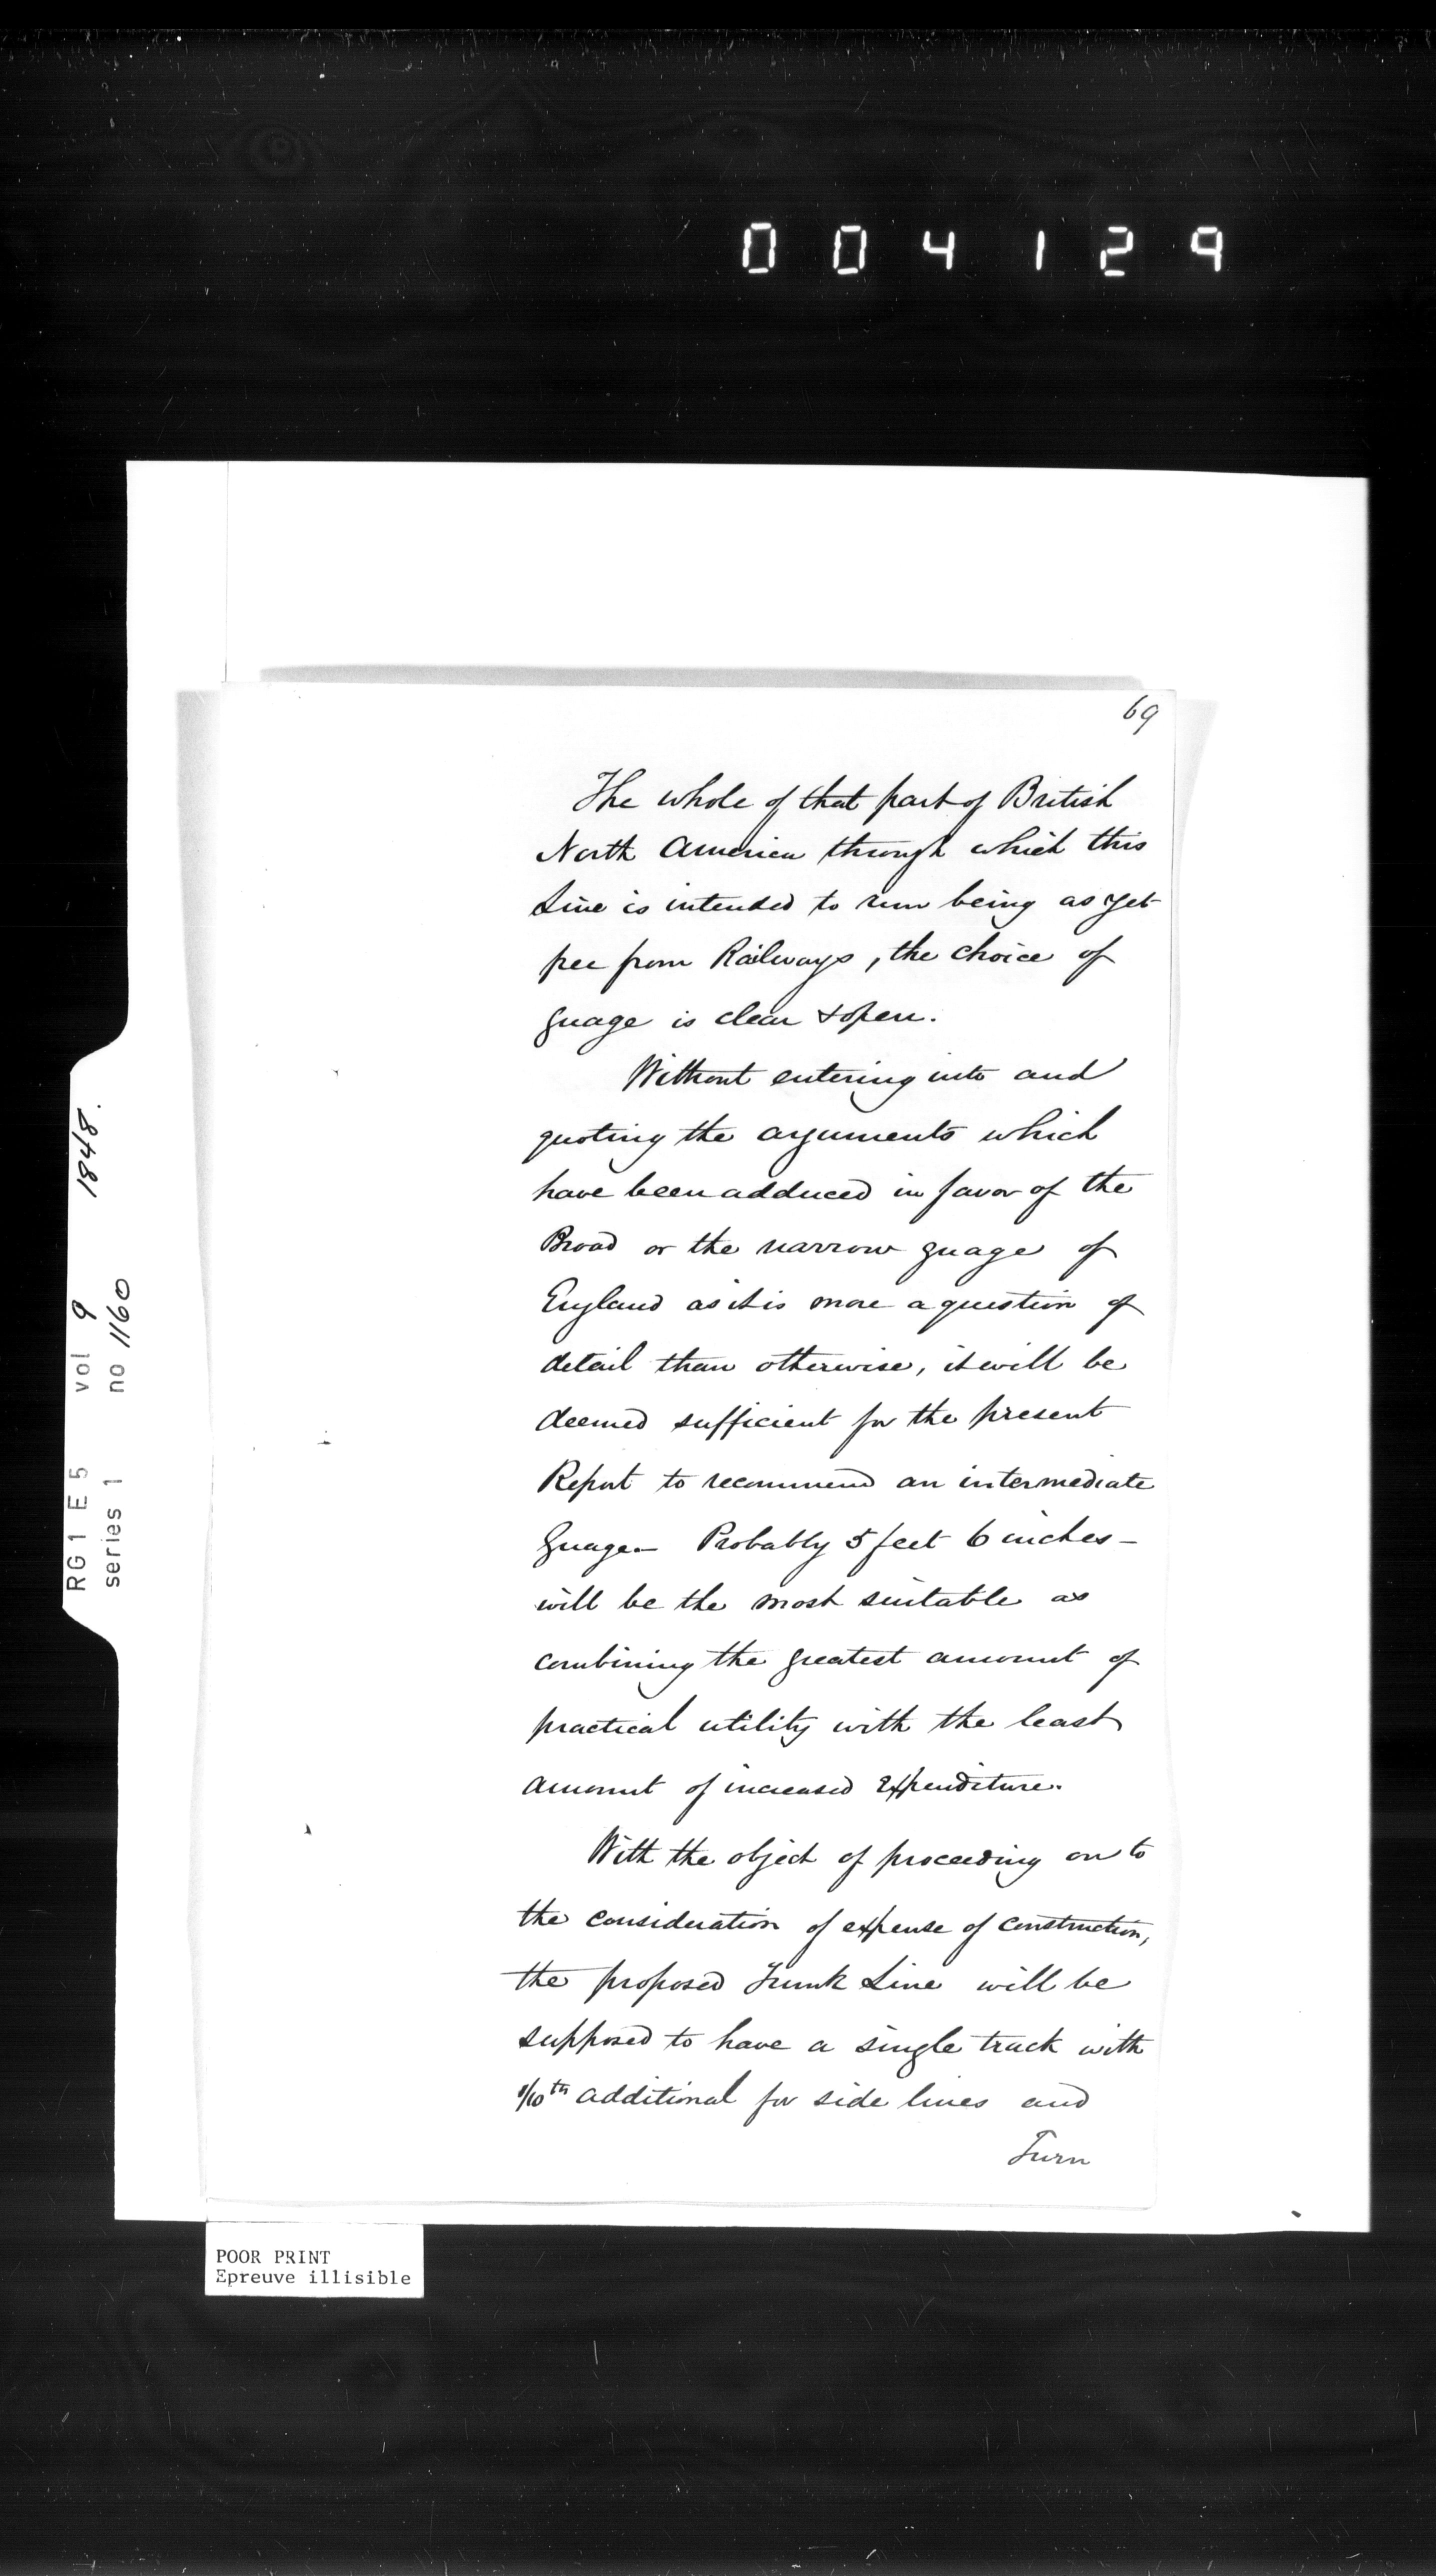 004129
69
The whole of that part of British
North America through which this
Line is intended to run being as yet
free from Railways, the choice of
guage is clear & open.
Without entering into and
quoting the arguments which
have been adduced in favor of the
Broad or the narrow guage of
England as it is more a question of
detail than otherwise, it will be
deemed sufficient for the present
Report to recommend an intermediate
Guage – Probably 5 feet 6 inches –
will be the most suitable as
combining the greatest amount of
practical utility with the least
amount of increased expenditure.
With the object of proceeding on to
the consideration of expense of construction,
the proposed Trunk Line will be
supposed to have a single track with
1/10th additional for side lines and
Turn
RG1 E5 vol 9 1848.
series 1 no 1160
POOR PRINT
Epreuve illisible